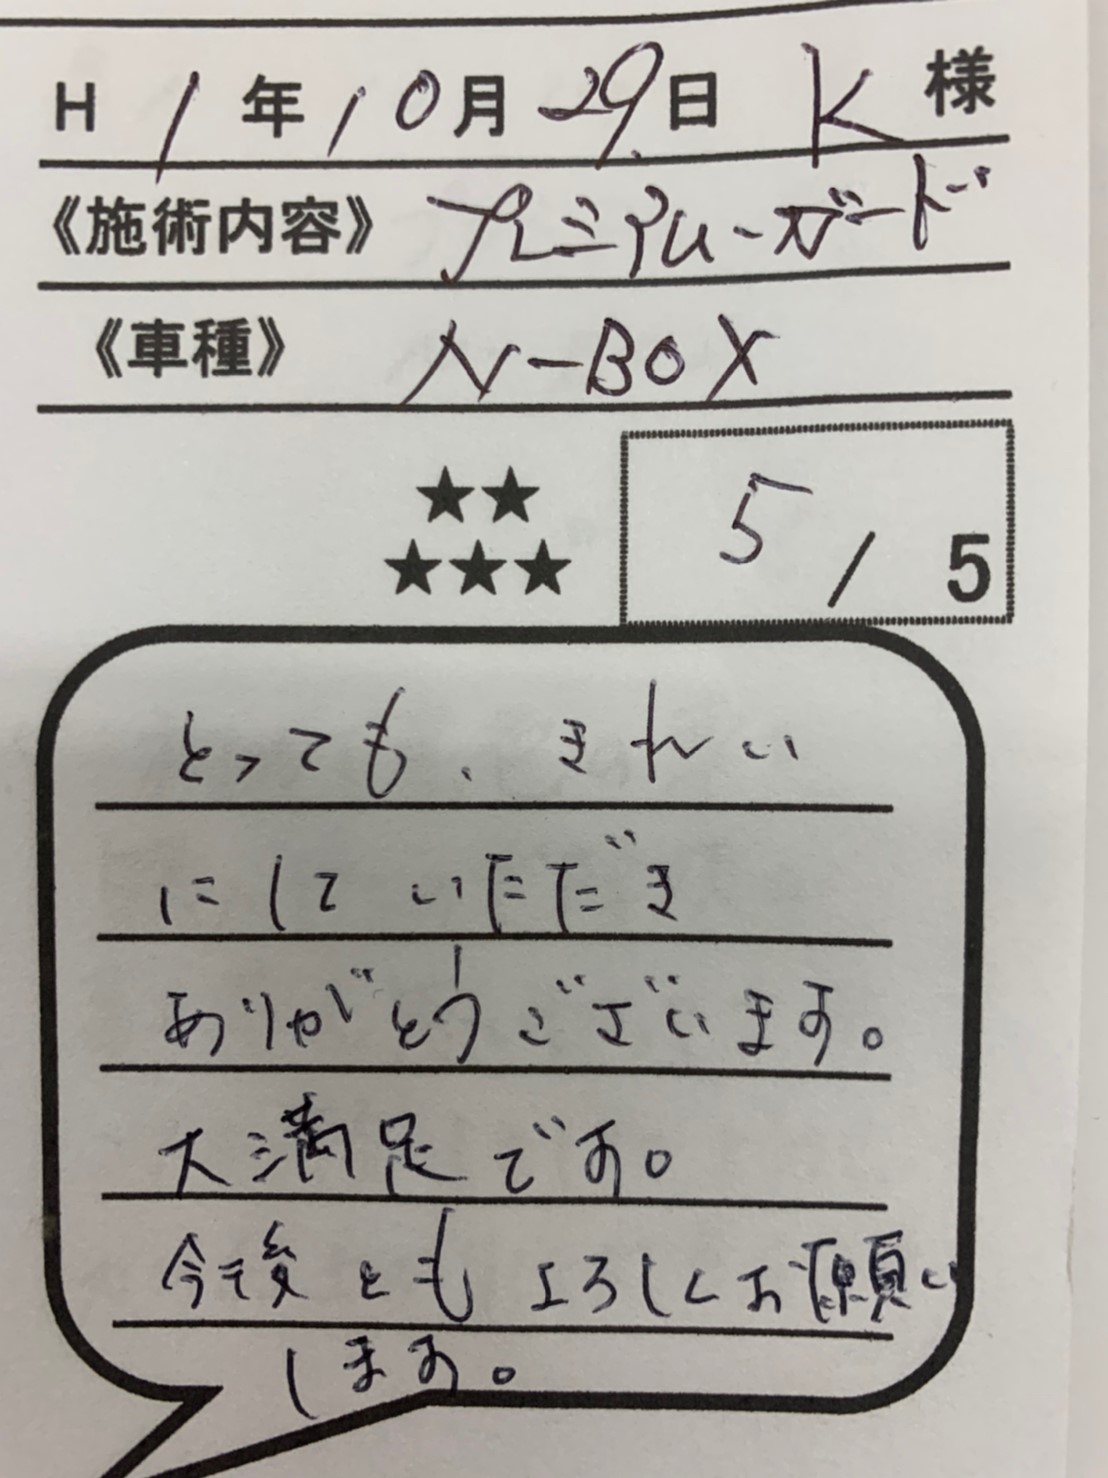 H 1年10月29日 K 様
《施術内容》 プレミアム-ガード
《車種》 N-BOX
★★
★★★
5/5
とっても、きれい
にしていただき
ありがとうございます。
大満足です。
今後ともよろしくお願い
します。